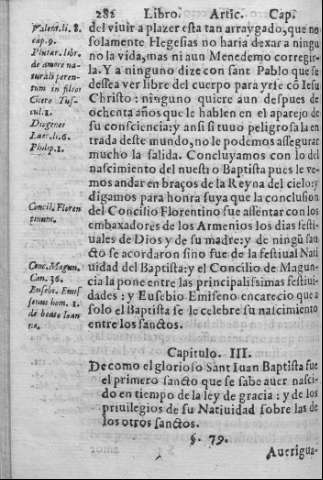 282 Libro. Artic. Cap.
Valeri. li. 8.
cap. 9.
Plutar. libr.
de amore na-
turali paren-
tum in filios
Cicero Tus-
cul. 1.
Diogenes
Laer. li. 6.
Philip. 1.
Concil. Floren
tinum.
Conc. Magun.
Can. 36.
Euseb. Emis
senus hom. 1.
de beato Ioan
ne.
del viuir a plazer esta tan arraygado, que no
solamente Hegesias no haria dexar a ningu
no la vida, mas ni aun Menedemo corregir-
la. Y a ninguno dize con sant Pablo que se
dessea ver libre del cuerpo para yrse cō Iesu
Christo: ninguno quiere aun despues de
ochenta años que le hablen en el aparejo de
su consciencia: y ansi si tuuo peligrosa la en
trada deste mundo, no le podemos assegurar
mucho la salida. Concluyamos con lo del
nascimiento del nuestro Baptista pues le ve-
mos andar en braços de la Reyna del cielo: y
digamos para honra suya que la conclusion
del Concilio Florentino fue assentar con los
embaxadores de los Armenios los dias festi-
uales de Dios y de su madre: y de ningū san
cto se acordaron sino fue de la festiual Nati
uidad del Baptista: y el Concilio de Magun-
cia la pone entre las principalissimas festiui-
dades: y Eusebio Emiseno encarecio que a
solo el Baptista se le celebre su nascimiento
entre los sanctos.
Capitulo. III.
De como el glorioso Sant Iuan Baptista fue
el primero sancto que se sabe auer nasci-
do en tiempo de la ley de gracia: y de los
priuilegios de su Natiuidad sobre las de
los otros sanctos.
§. 79.
Auerigua-